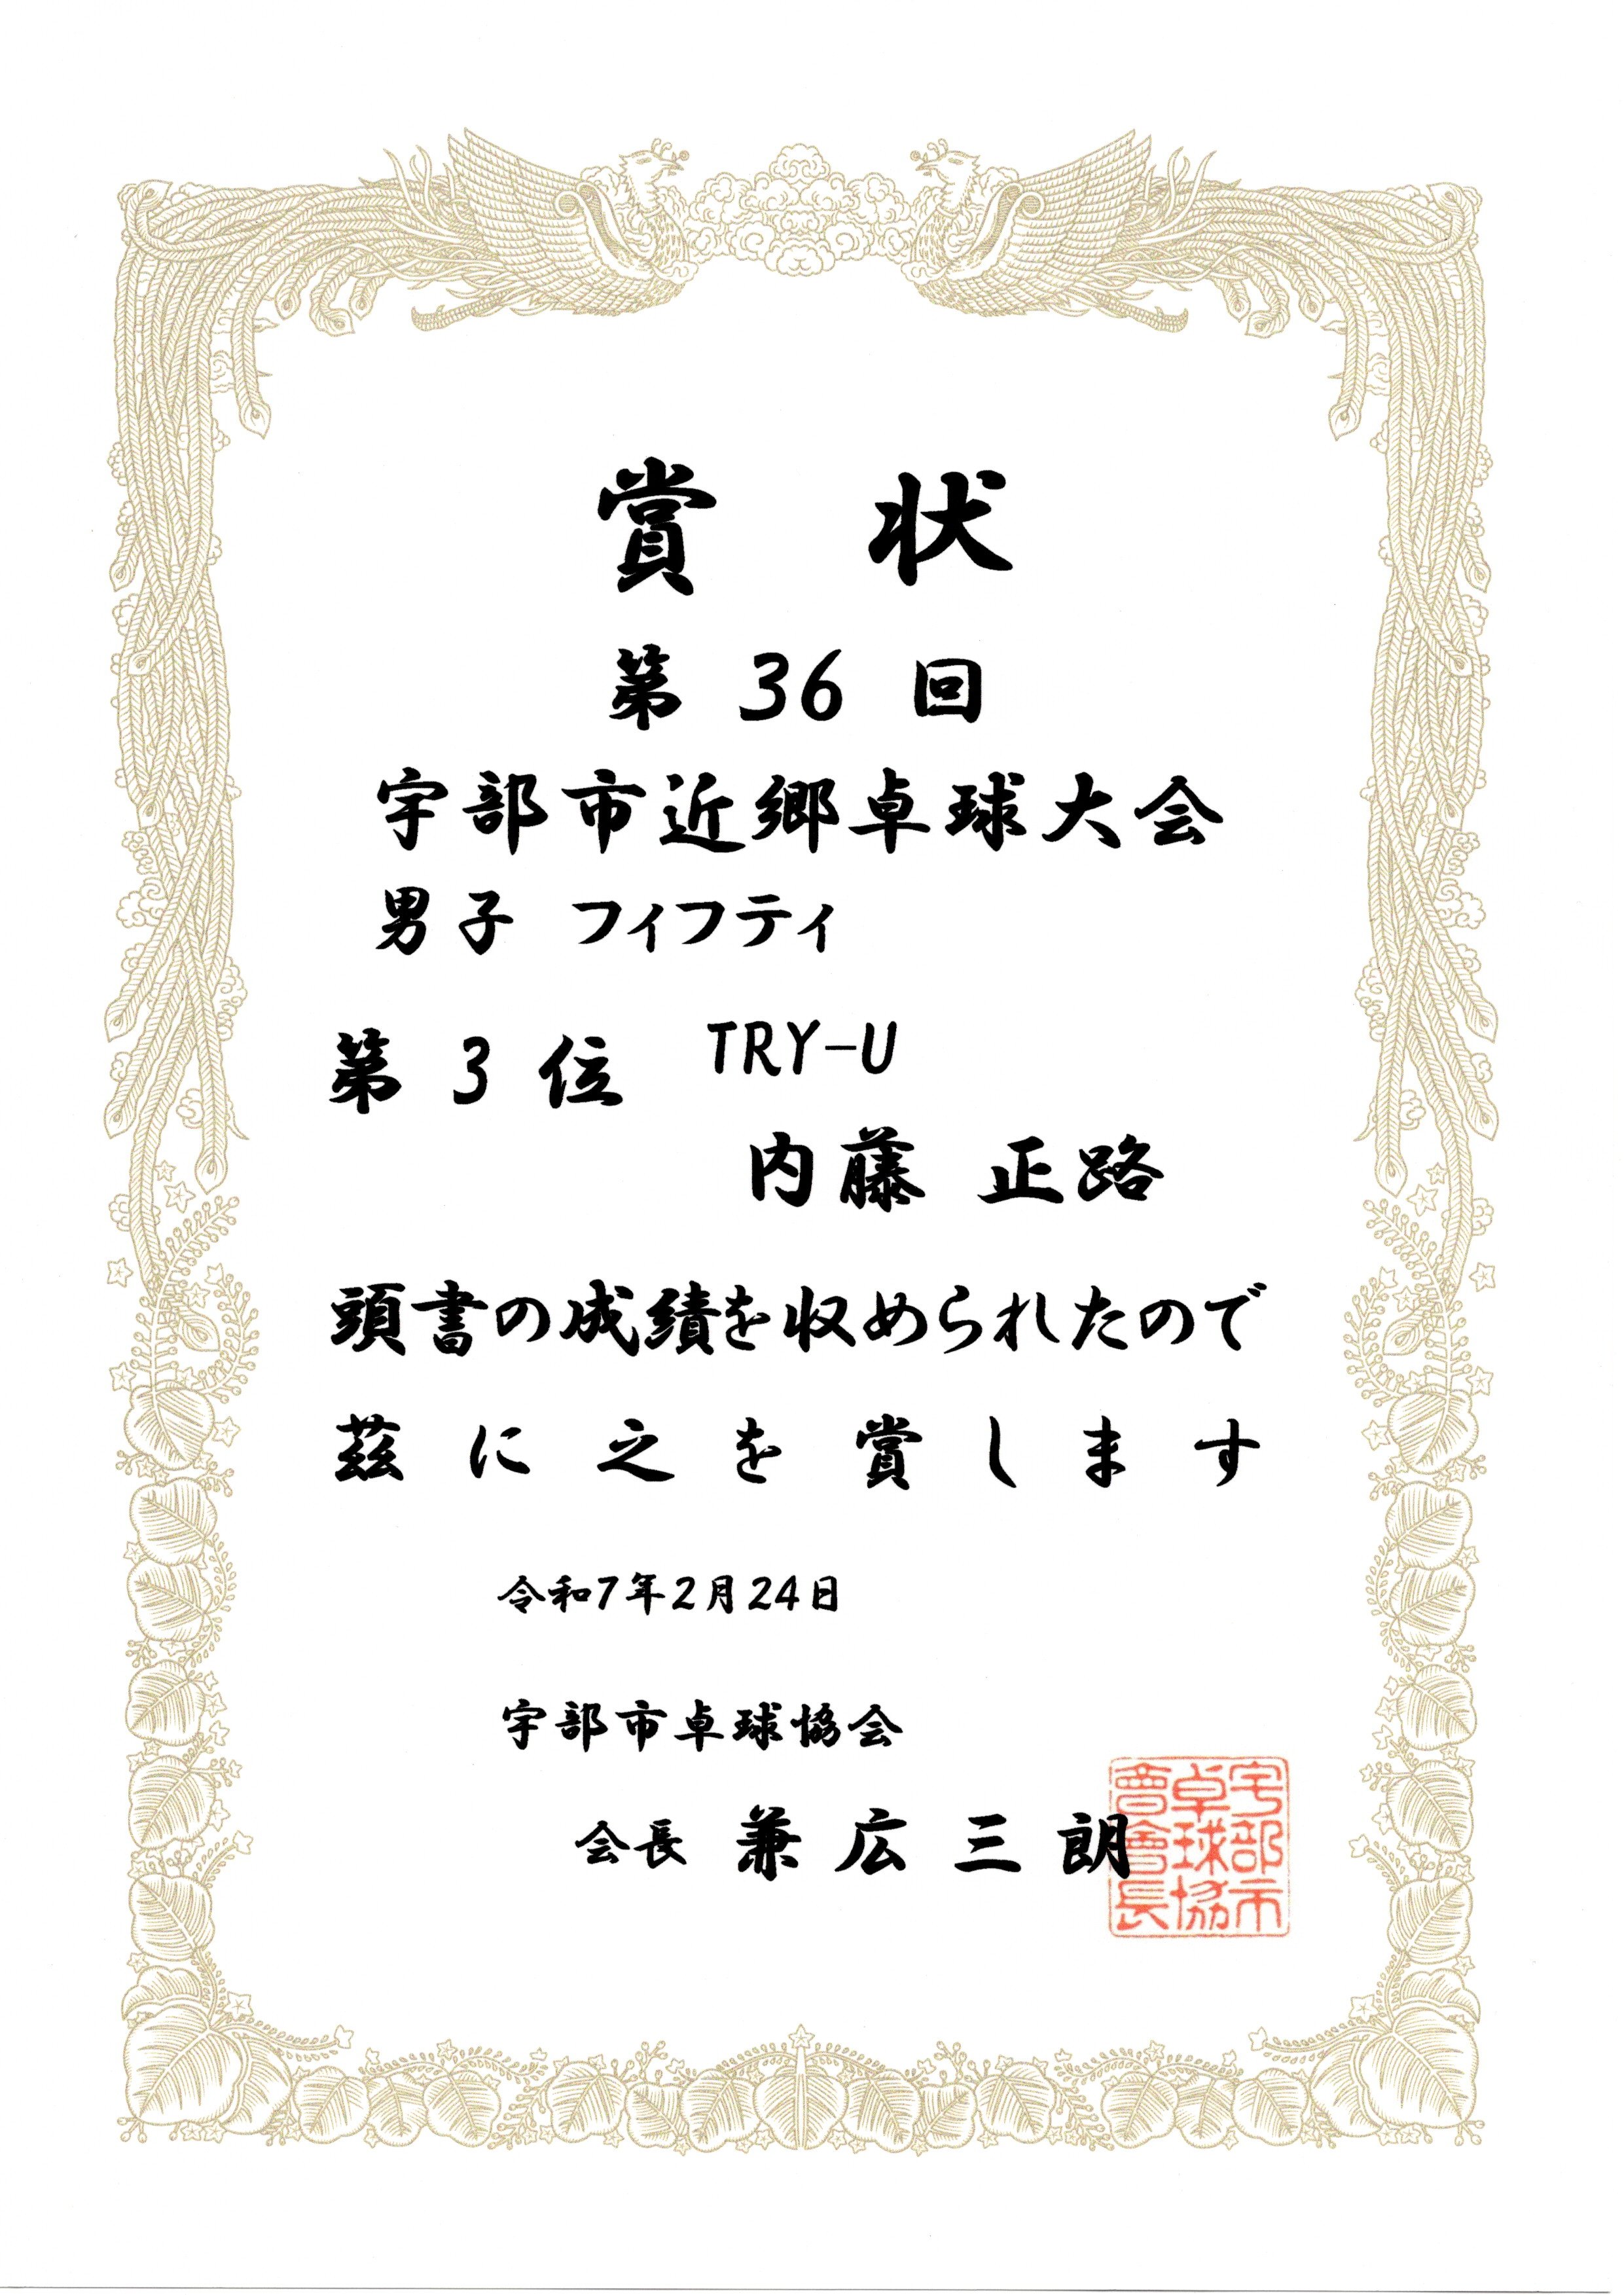 賞状
第 36 回
宇部市近郷卓球大会
男子 フィフティ
第 3 位 TRY-U
内藤 正路
頭書の成績を収められたので
茲に之を賞します
令和7年2月24日
宇部市卓球協会
会長 兼広三朗
宇部市
卓球協
會會長